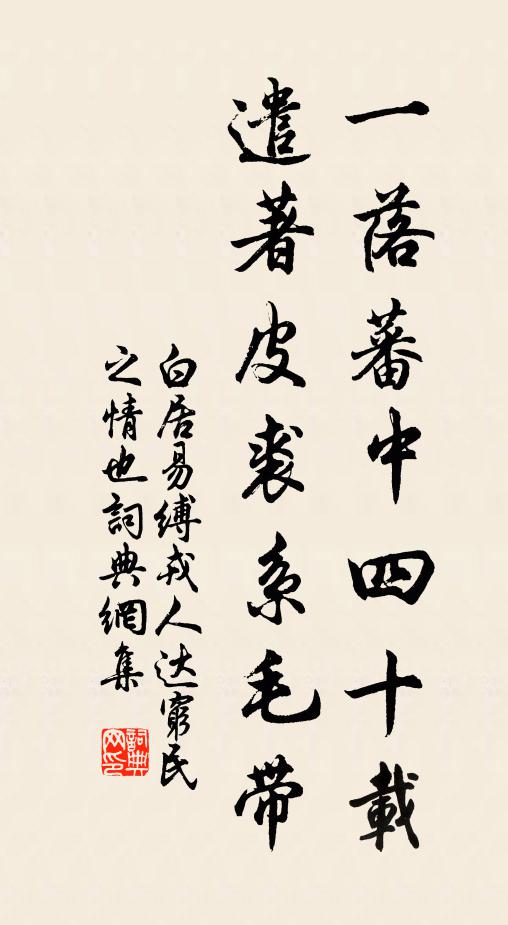 一落蕃中四十載
遣著皮裘系毛帶
白居易縛戎人达窮民
之情也詞典網集
詞典
网印